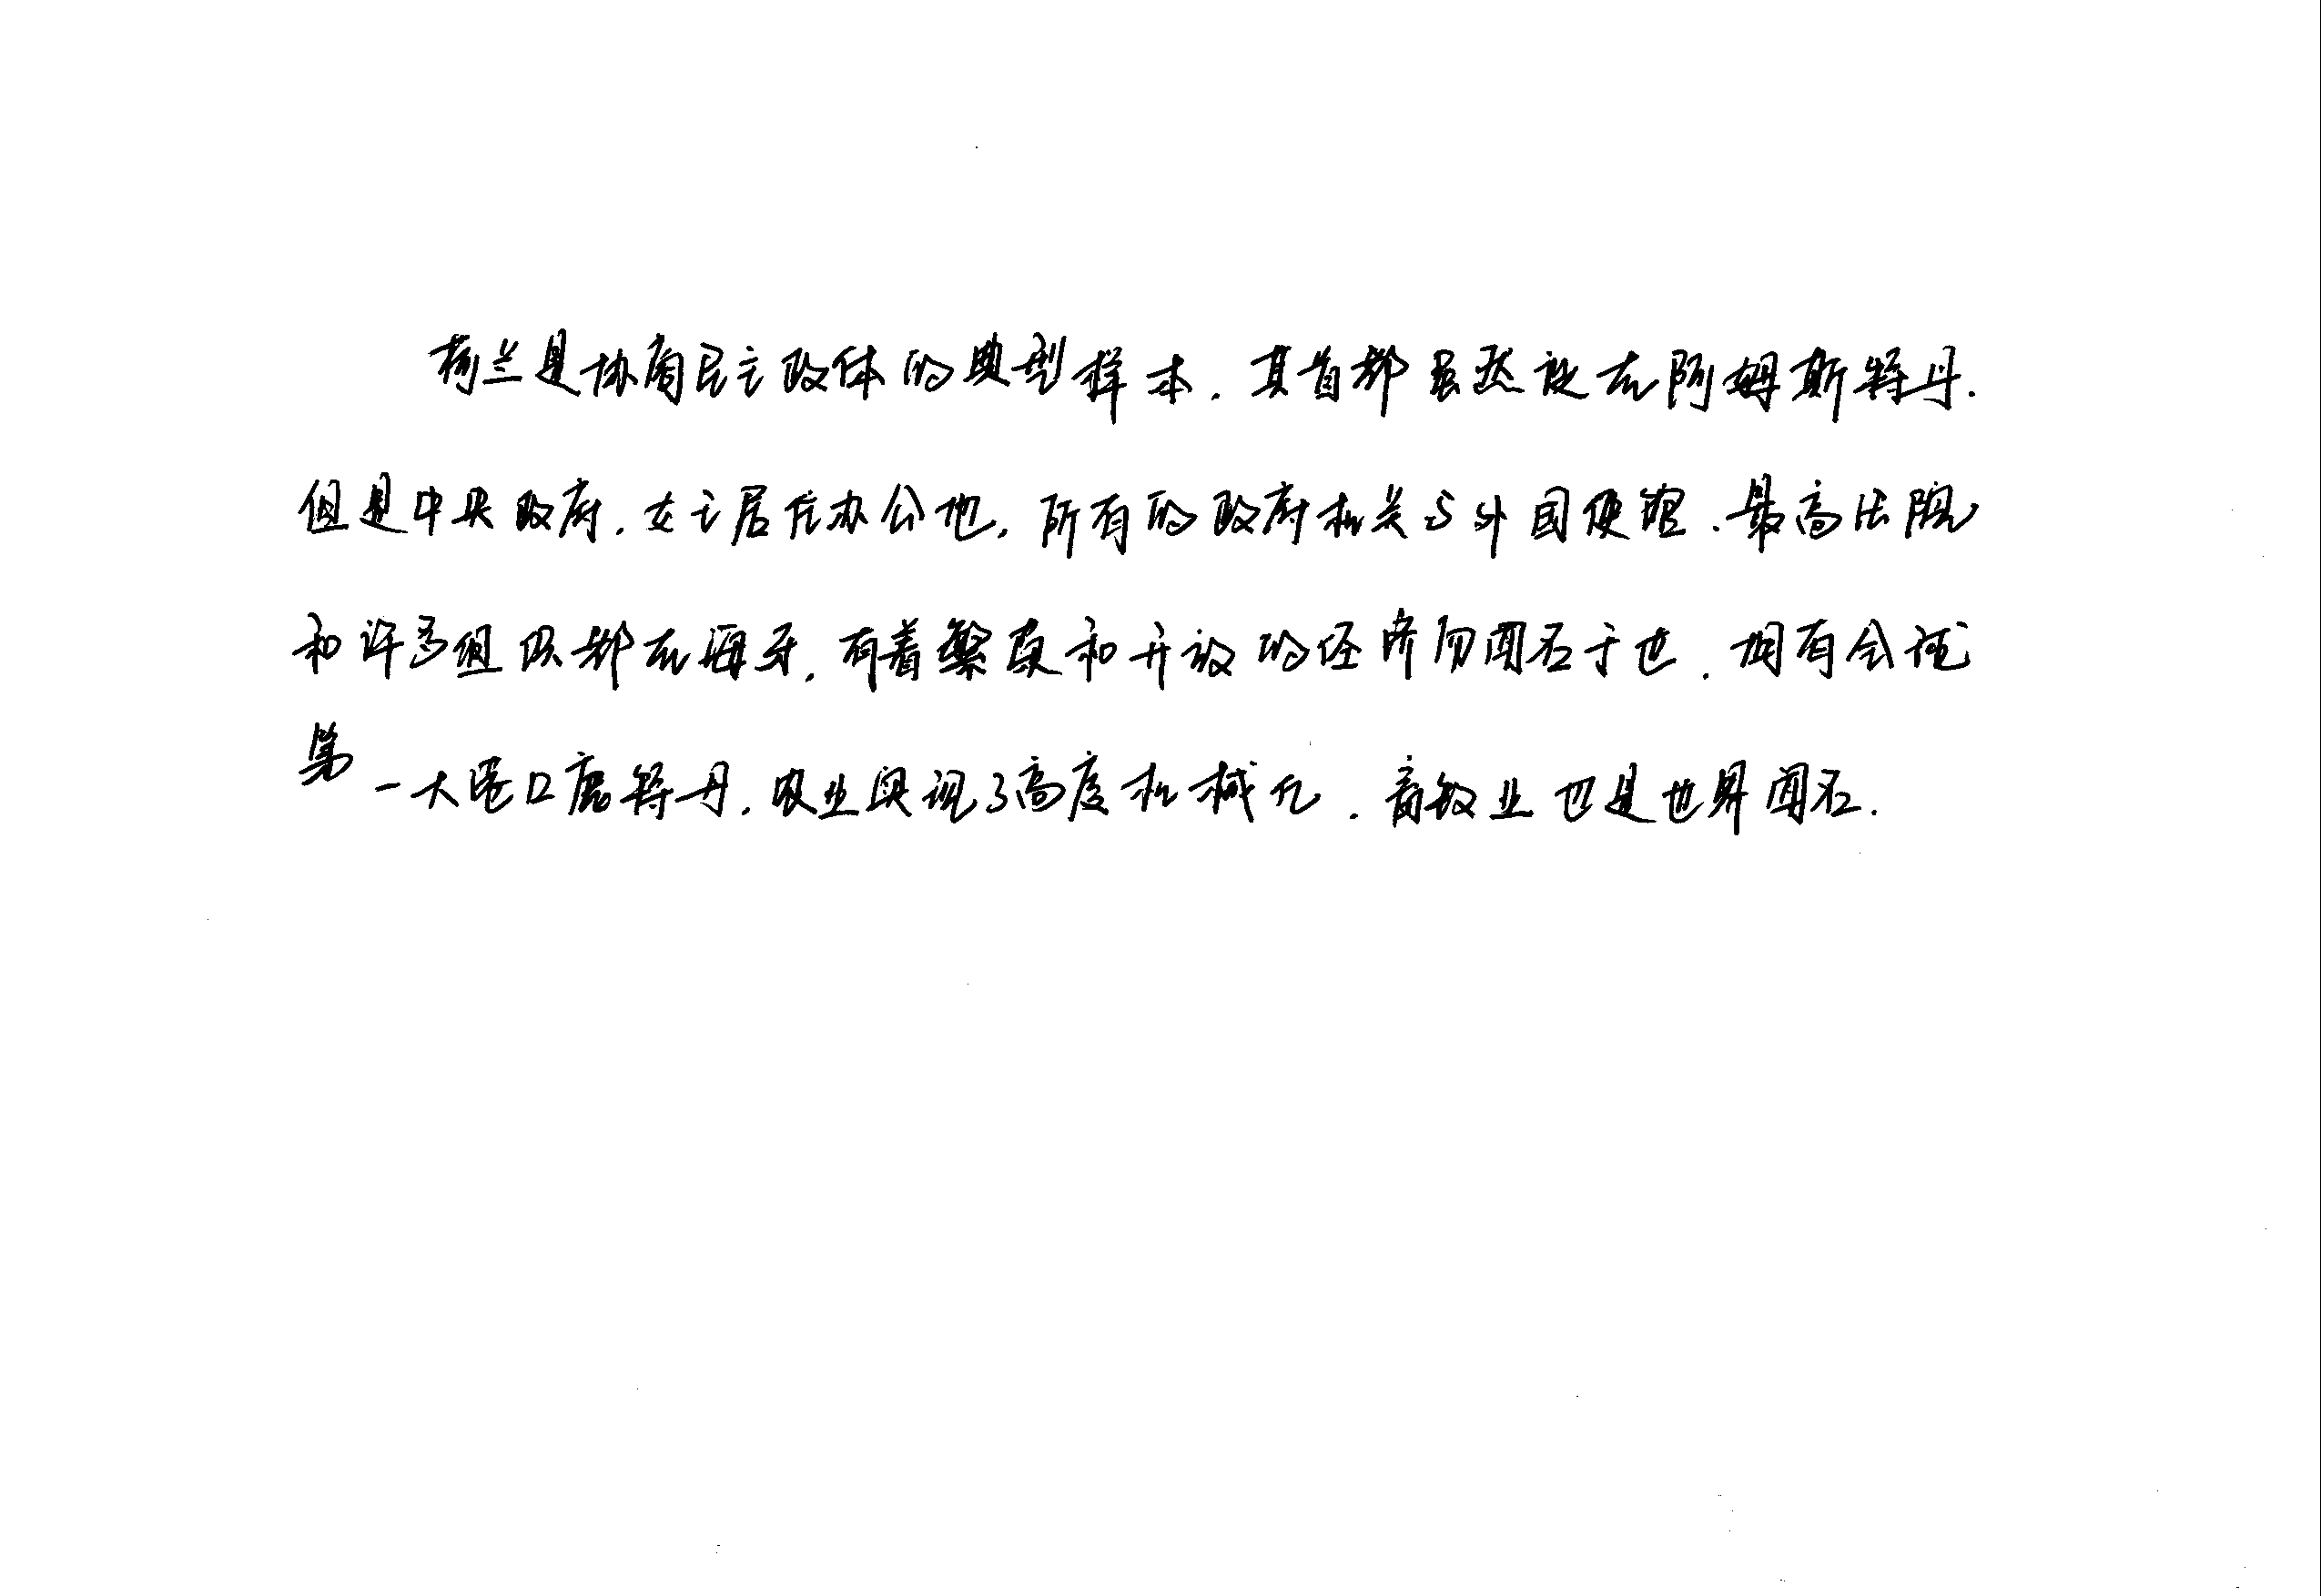 荷兰是协商民主政体的典型样本.其首都虽然设在阿姆斯特丹.
但是中央政府.女王居住办公地.所有的政府机关与外国使馆.最高法院
和许多组织都在海牙.有着繁荣和开放的经济而闻名于世.拥有全球
第一大港口鹿特丹.农业实现了高度机械化.畜牧业也是世界闻名.